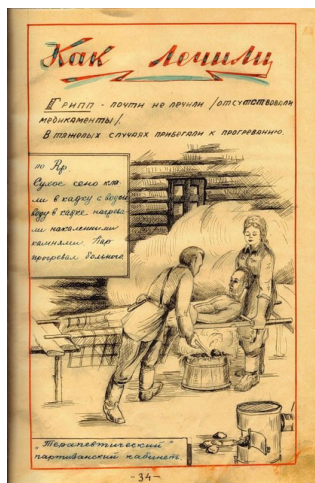 Как лечили
Грипп - почти не лечили /отсутствовали
медикаменты/.
В тяжелых случаях прибегали к прогреванию.
по Rp.
Сухое сено кла-
ли в кадку с водой
воду в кадке нагрева-
ли накаленными
камнями. Пар
прогревал больного
"Терапевтический"
партизанский кабинет.
-34-